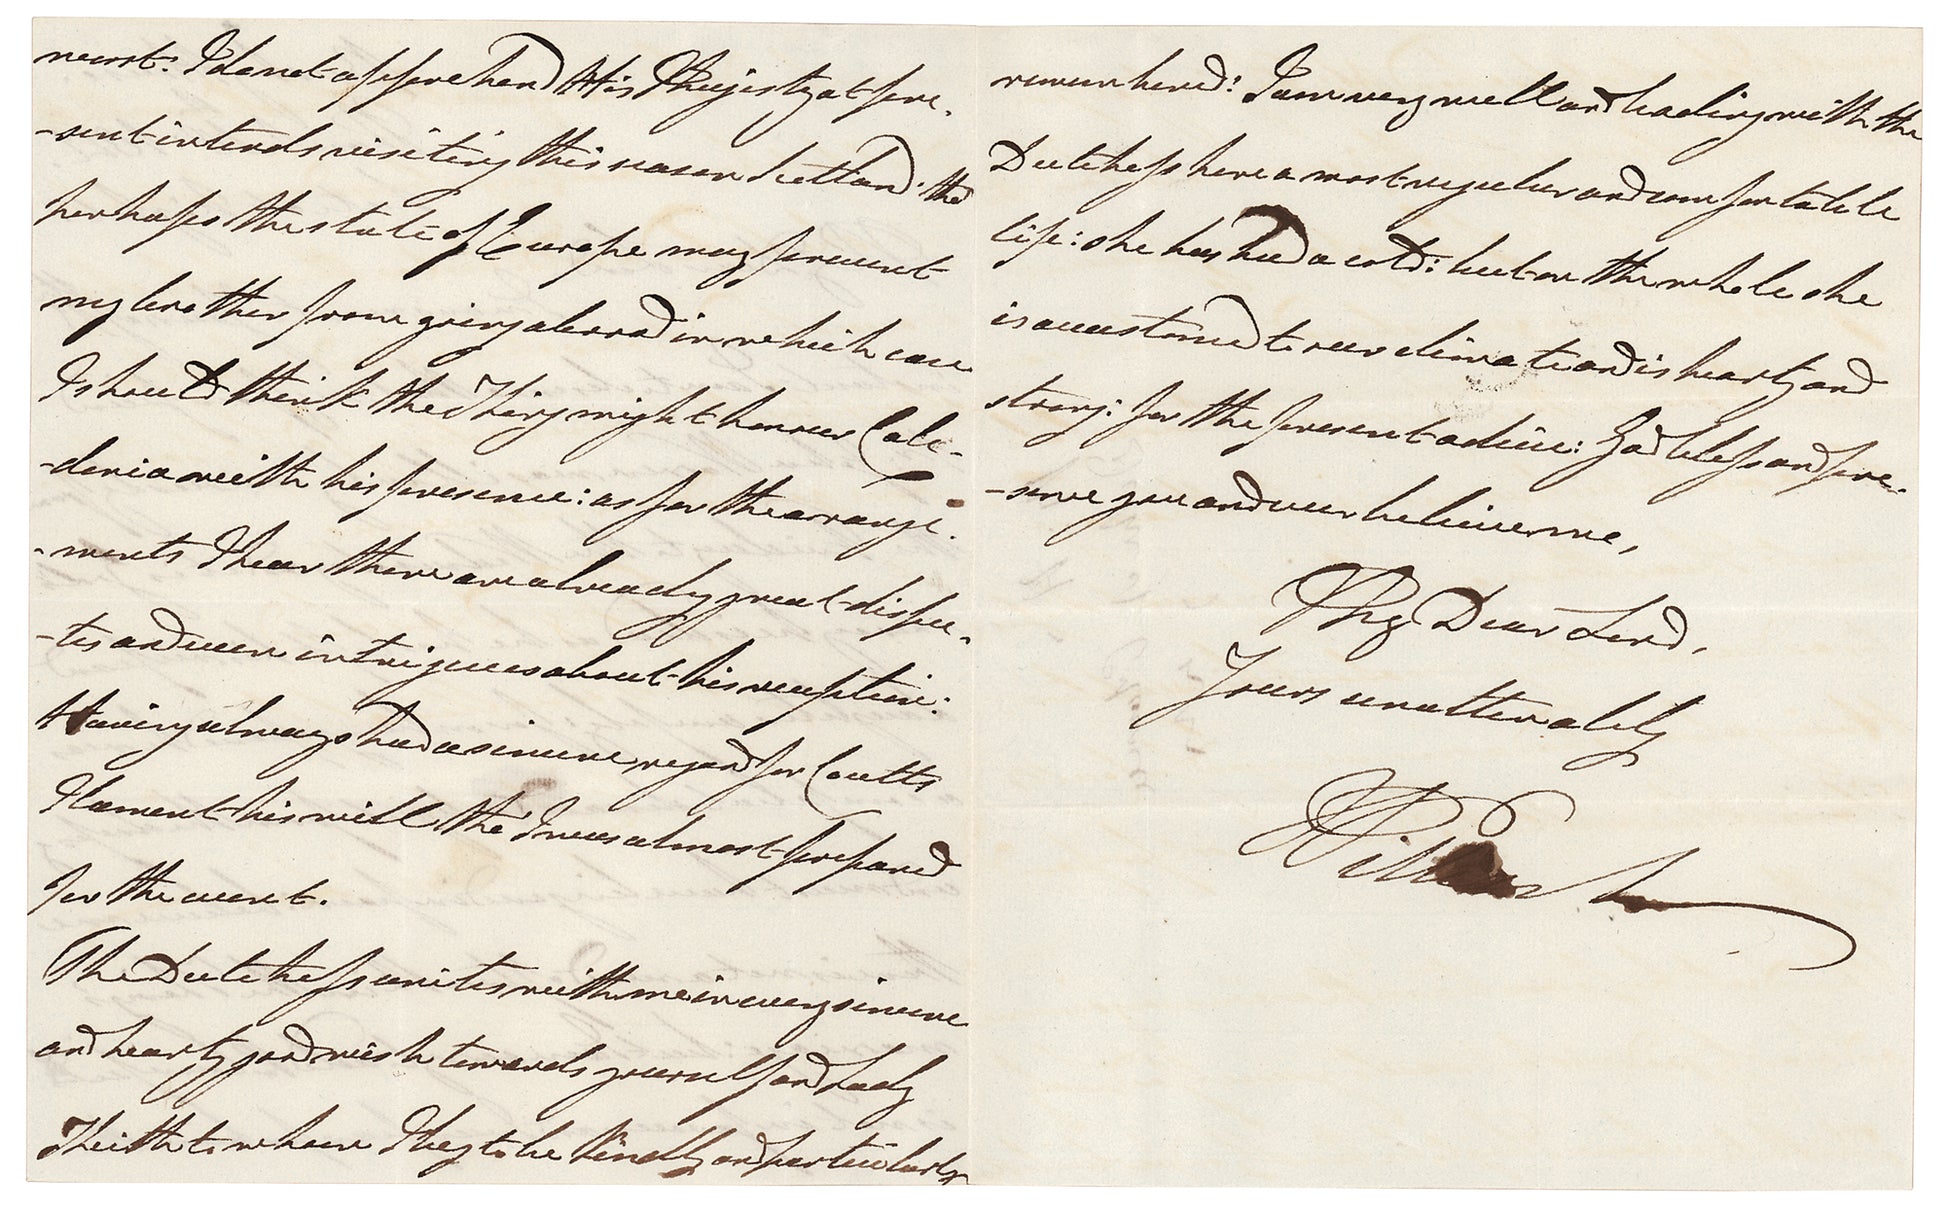 I do not apprehend His Majesty at pre-
-sent intends visiting this season Scotland: tho'
perhaps the state of Europe may prevent
my brother from going abroad in which case
I should think the King might honour Cale-
-donia with his presence: as for the arrange-
-ments I hear there are already great dispu-
-tes and even intrigues about his reception:
Having always had a sincere regard for Coutts
I lament his will tho' I was almost prepared
for the event.
The Dutchess unites with me in every sincere
and hearty good wish towards yourself and Lady
Keith to whom I beg to be kindly and particularly
remembered: I am very well and leading with the
Dutchess here a most regular and comfortable
life: she has had a cold: but on the whole she
is accustomed to our climate and is hearty and
strong: for the present adieu: God bless and pre-
-serve you and ever believe me,
My Dear Lord,
Yours unalterably
William